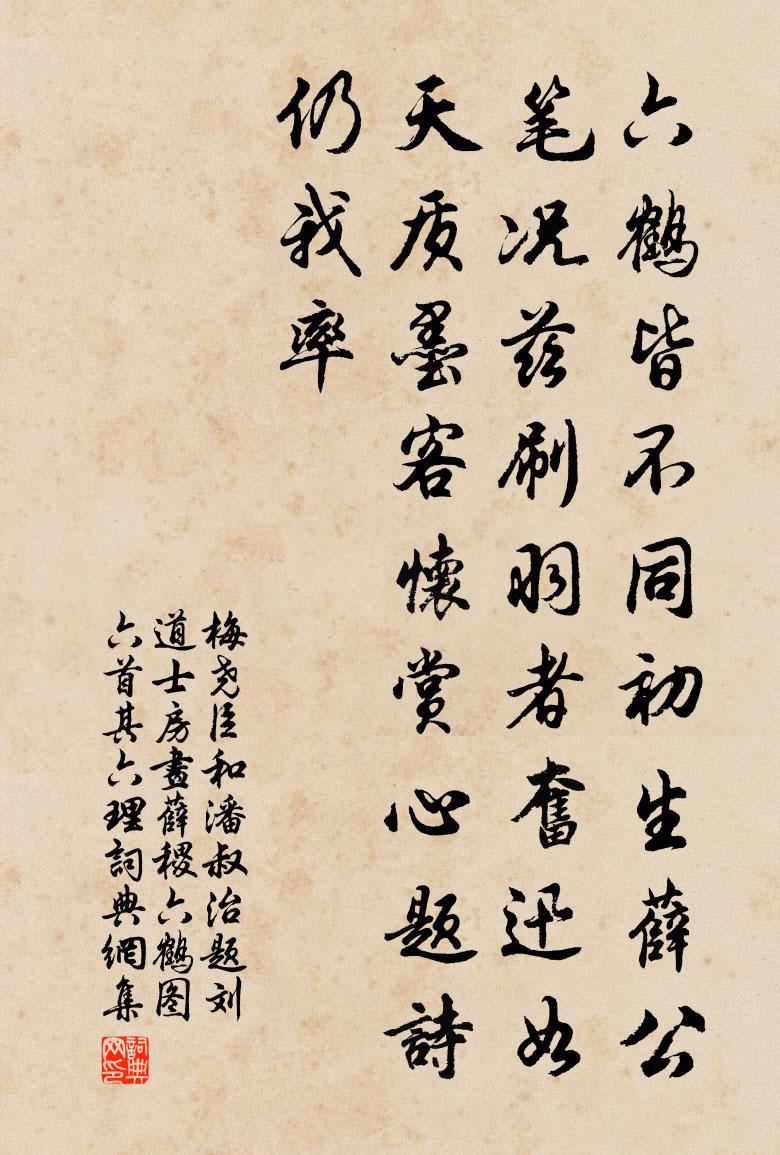 六鹤皆不同初生薛公
笔况兹刷羽者奮迅如
天质墨客懷賞心题詩
仍我率
梅尧臣和潘叔治题刘
道士房畫薛稷六鶴图
六首其六理詞典網集
詞典网印